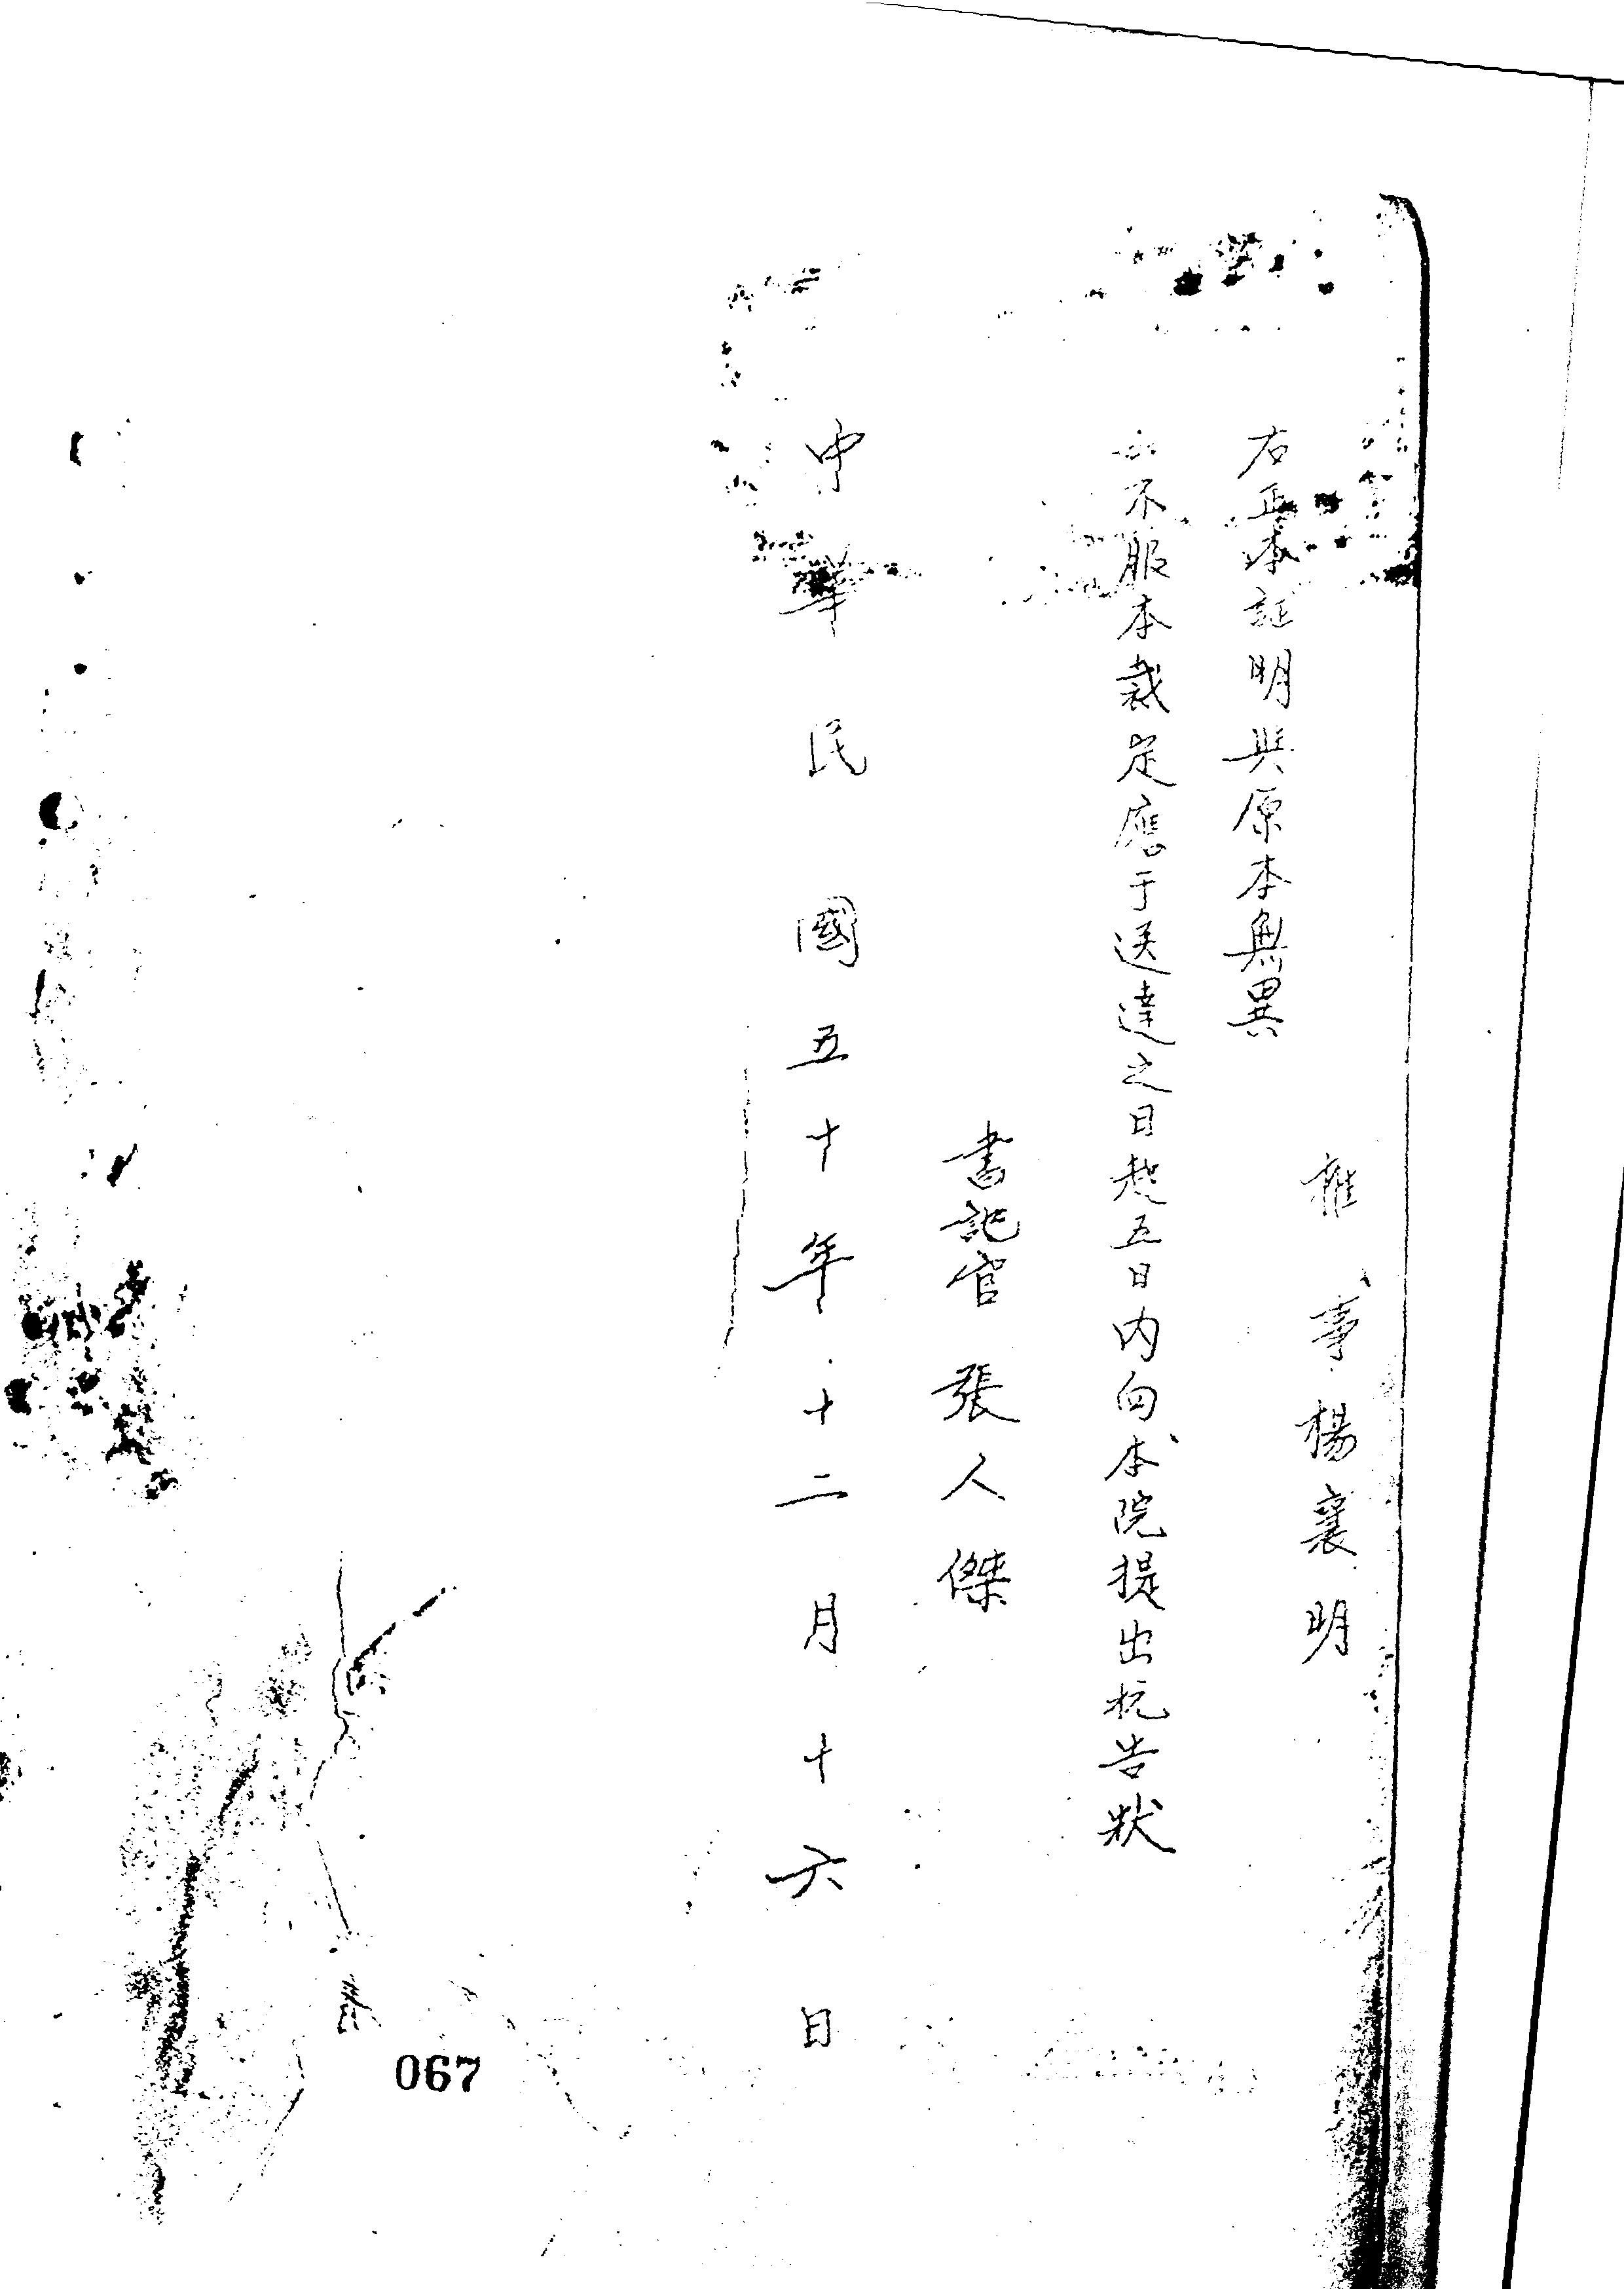 推事楊襄明
右正本証明與原本無異
如不服本裁定應于送達之日起五日内向本院提出抗告狀
書記官張人傑
中華民國五十年十二月十六日
067